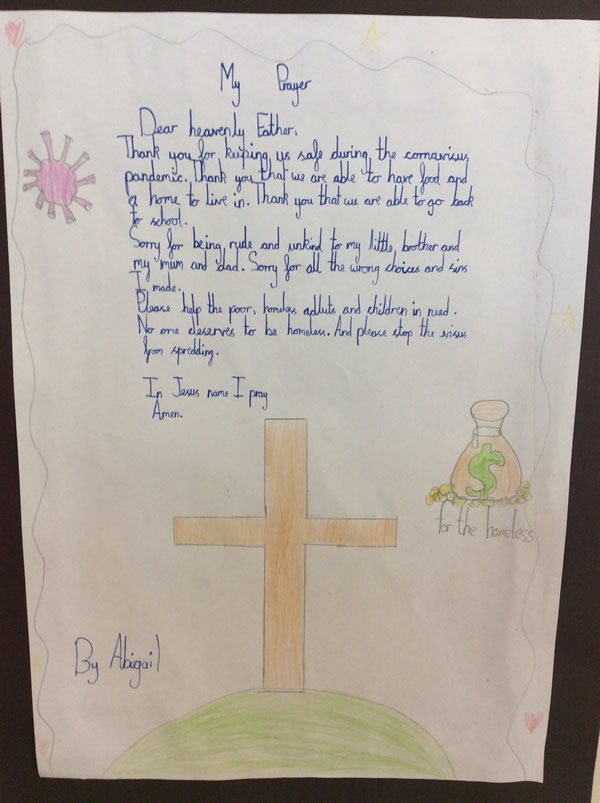 My Prayer
Dear heavenly Father,
Thank you for keeping us safe during the cornavirus
pandemic. Thank you that we are able to have food and
a home to live in. Thank you that we are able to go back
to school.
Sorry for being rude and unkind to my little brother and
my mum and dad. Sorry for all the wrong choices and sins
I made.
Please help the poor, homeless adluts and children in need.
No one deserves to be homeless. And please stop the virus
from spredding.
In Jesus name I pray
Amen.
$
for the homeless
By Abigail